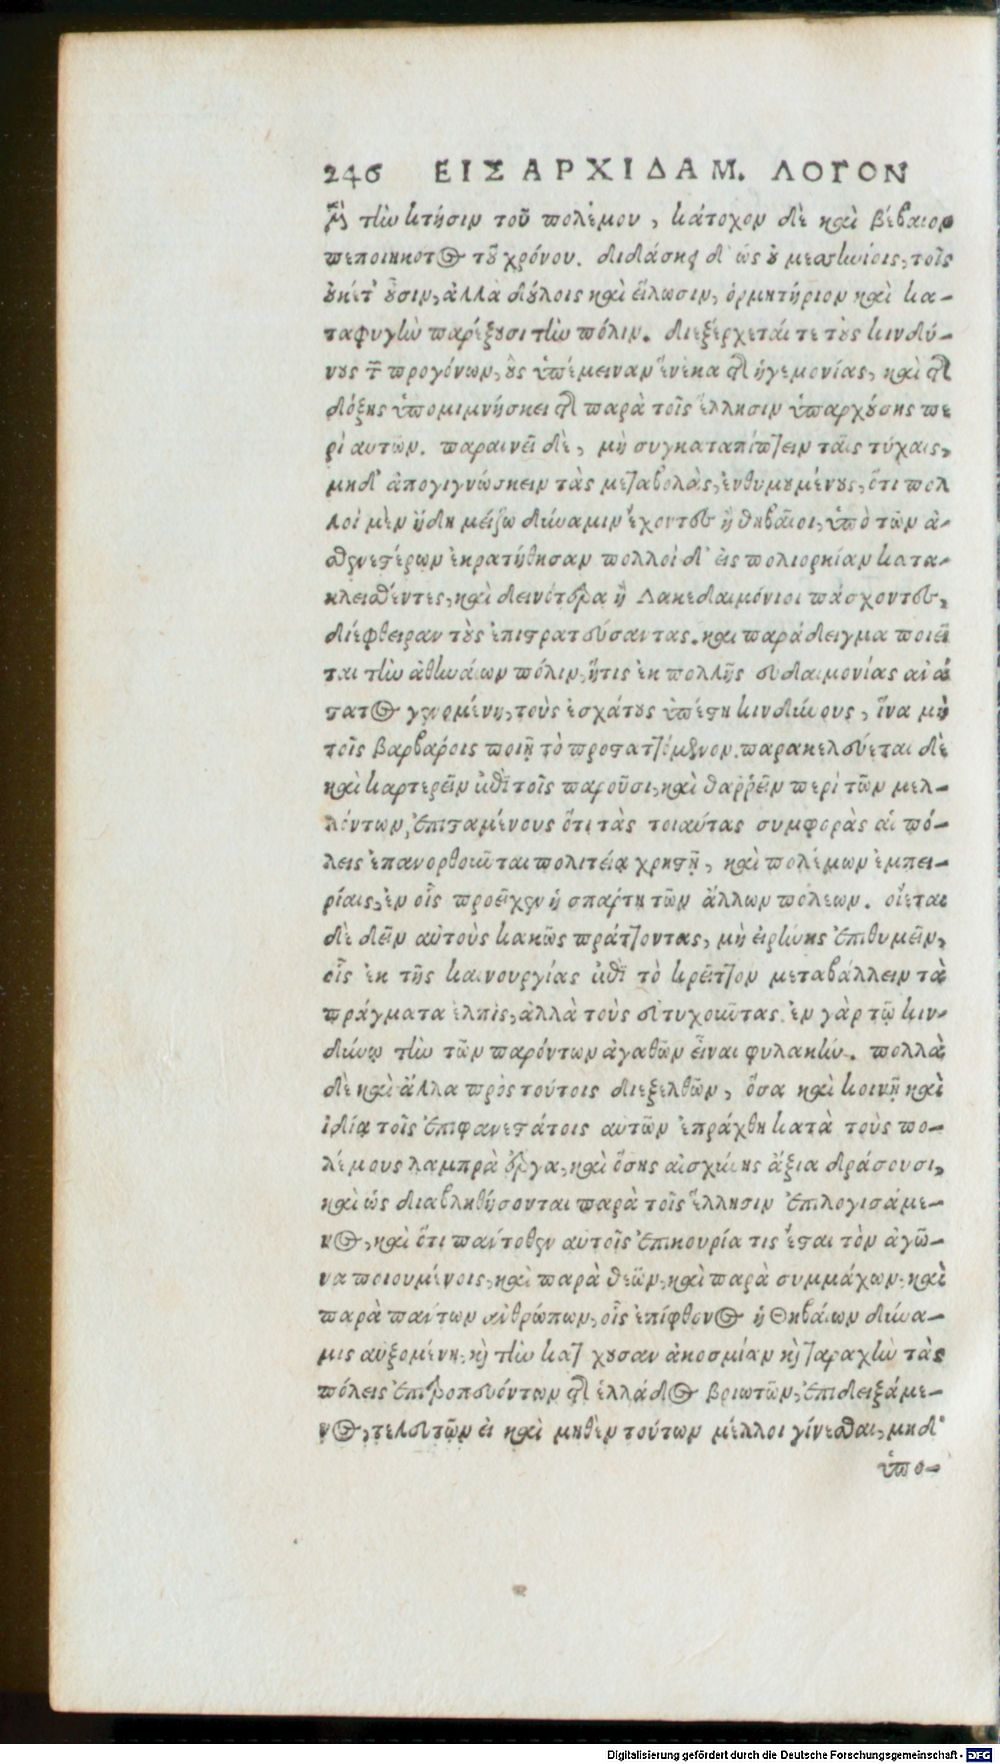 246 ΕΙΣ ΑΡΧΙΔΑΜ. ΛΟΓΟΝ
τὴν κτῆσιν τοῦ πολέμου, κάτοχον δὲ καὶ βέβαιον
πεποιηκότος τοῦ χρόνου. διδάσκει δ' ὡς οὐ μεσσηνίοις, τοῖς
οὐκέτ' οὖσιν, ἀλλὰ δούλοις καὶ εἵλωσιν, ὁρμητήριον καὶ κα-
ταφυγὴν παρέξουσι τὴν πόλιν. διεξέρχεταί τε τοὺς κινδύ-
νους τῶν προγόνων, οὓς ὑπέμειναν ἕνεκα τῆς ἡγεμονίας, καὶ τῆς
δόξης ὑπομιμνήσκει τῆς παρὰ τοῖς ἕλλησιν ὑπαρχούσης πε
ρὶ αυτῶν. παραινεῖ δὲ, μὴ συγκαταπίπτειν ταῖς τύχαις,
μηδ' ἀπογιγνώσκειν τὰς μεταβολὰς, ἐνθυμουμένους, ὅτι πολ
λοὶ μὲν ἤδη μείζω δύναμιν ἔχοντες ἢ θηβαῖοι, ὑπὸ τῶν ἀ-
σθενεστέρων ἐκρατήθησαν πολλοὶ δ' εἰς πολιορκίαν κατα-
κλεισθέντες, καὶ δεινότερα ἢ Λακεδαιμόνιοι πάσχοντες,
διέφθειραν τοὺς ἐπιστρατεύσαντας. καὶ παράδειγμα ποιεῖ
ται τὴν ἀθηναίων πόλιν, ἥτις ἐκ πολλῆς εὐδαιμονίας ἀνά
στατος γενομένη, τοὺς ἐσχάτους ὑπέστη κινδύνους, ἵνα μὴ
τοῖς βαρβάροις ποιῇ τὸ προσταττόμενον. παρακελεύεται δὲ
καὶ καρτερεῖν ἐπὶ τοῖς παροῦσι, καὶ θαῤῥεῖν περὶ τῶν μελ-
λόντων, ἐπισταμένους ὅτι τὰς τοιαύτας συμφορὰς αἱ πό-
λεις ἐπανορθοῦνται πολιτείᾳ χρηστῇ, καὶ πολέμων ἐμπει-
ρίαις, ἐν οἷς προεῖχεν ἡ σπάρτη τῶν ἄλλων πόλεων. οἴεται
δὲ δεῖν αὐτοὺς κακῶς πράττοντας, μὴ εἰρήνης ἐπιθυμεῖν,
οἷς ἐκ τῆς καινουργίας ἐπὶ τὸ κρεῖττον μεταβάλλειν τὰ
πράγματα ἐλπὶς, ἀλλὰ τοὺς εὐτυχοῦντας. ἐν γὰρ τῷ κιν-
δύνῳ τὴν τῶν παρόντων ἀγαθῶν εἶναι φυλακήν. πολλὰ
δὲ καὶ ἄλλα πρὸς τούτοις διεξελθὼν, ὅσα καὶ κοινῇ καὶ
ἰδίᾳ τοῖς ἐπιφανεστάτοις αυτῶν ἐπράχθη κατὰ τοὺς πο-
λέμους λαμπρὰ ἔργα, καὶ ὅσης αἰσχύνης ἄξια δράσουσι,
καὶ ὡς διαβληθήσονται παρὰ τοῖς ἕλλησιν ἐπιλογισάμε-
νος, καὶ ὅτι πάντοθεν αυτοῖς ἐπικουρία τις ἔσται τὸν ἀγῶ-
να ποιουμένοις, καὶ παρὰ θεῶν, καὶ παρὰ συμμάχων, καὶ
παρὰ πάντων ἀνθρώπων, οἷς ἐπίφθονος ἡ Θηβαίων δύνα-
μις αὐξομένη, καὶ τὴν κατέχουσαν ἀκοσμίαν καὶ ταραχὴν τὰς
πόλεις ἐπιτροπευόντων τῆς ἑλλάδος βοιωτῶν, ἐπιδειξάμε-
νος, τελευτῶν εἰ καὶ μηθὲν τούτων μέλλοι γίνεσθαι, μηδ'
ὑπο-
Digitalisierung gefördert durch die Deutsche Forschungsgemeinschaft - DFG